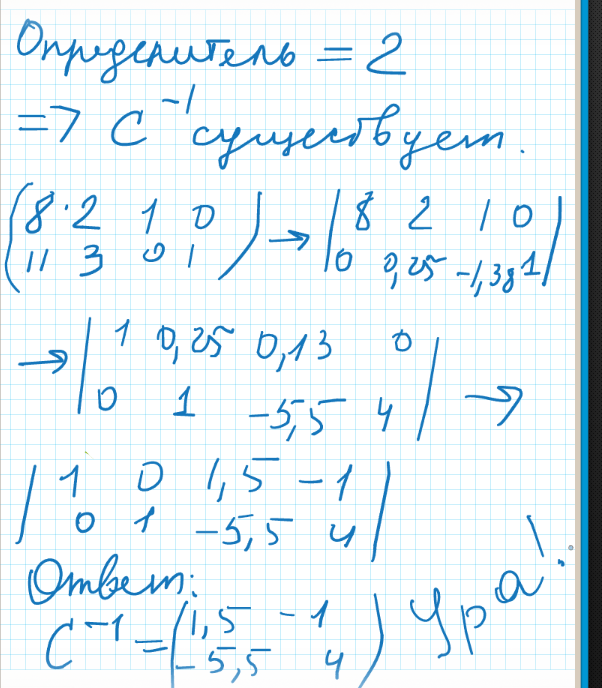 Определитель = 2
=> C⁻¹ существует.
(8 2 1 0) → |8 2 1 0|
(11 3 0 1) |0 0,25 -1,38 1|
→ |1 0,25 0,13 0|
|0 1 -5,5 4| →
|1 0 1,5 -1|
|0 1 -5,5 4|
Ответ: Ура!
C⁻¹ = (1,5 -1
-5,5 4)